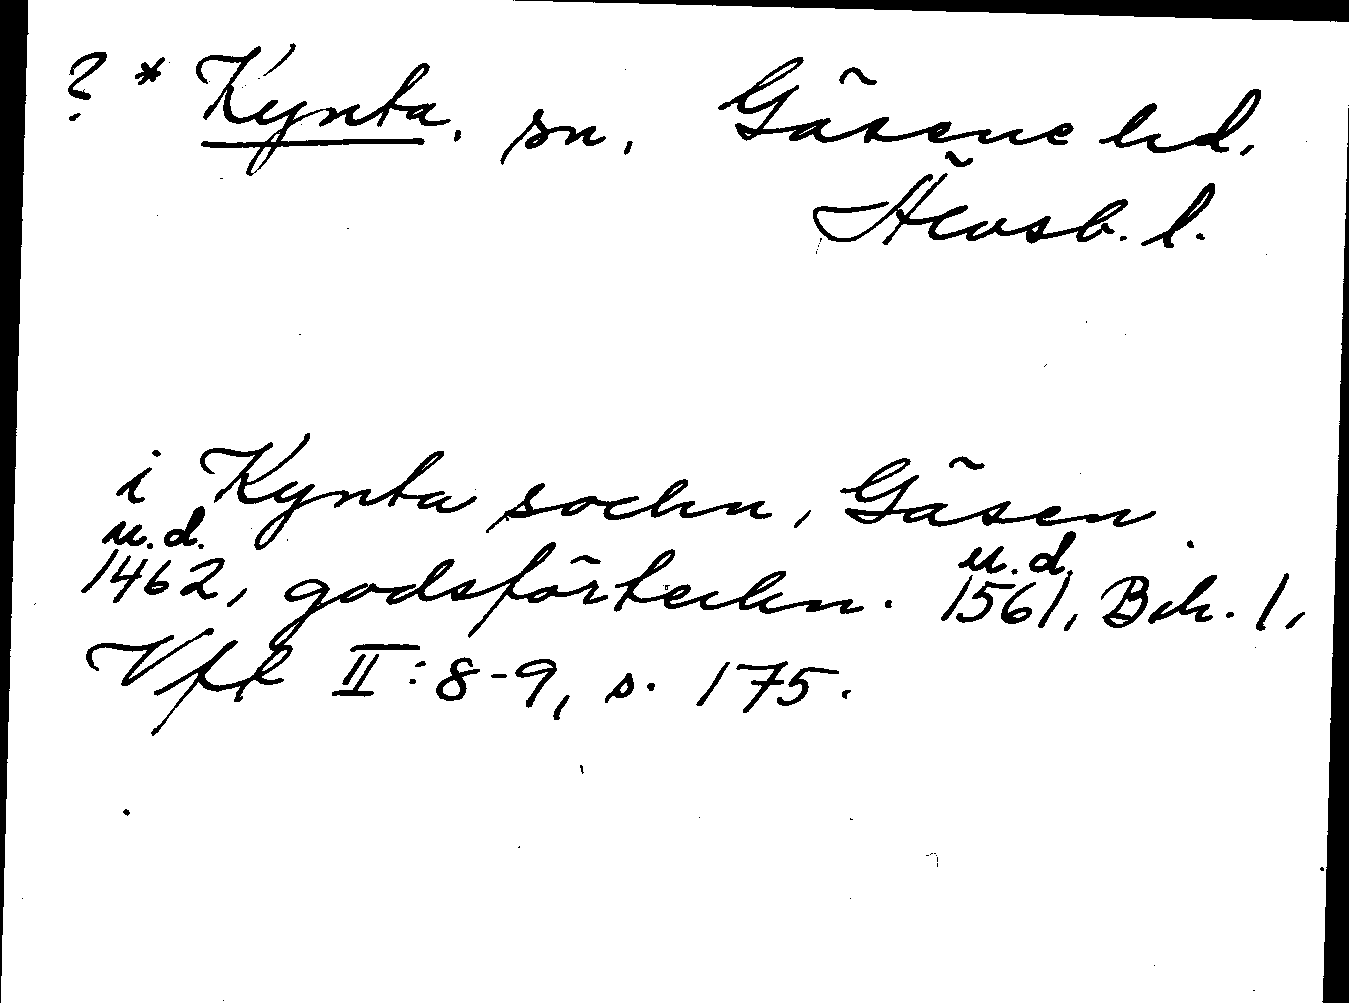 ? * Kynta, sn, Gäsene hd,
Älvsb. l.
i Kynta sochn, Gäsen
u.d. u.d.
1462, godsförteckn. 1561, Bih. 1,
Vfr II:8-9, s. 175.